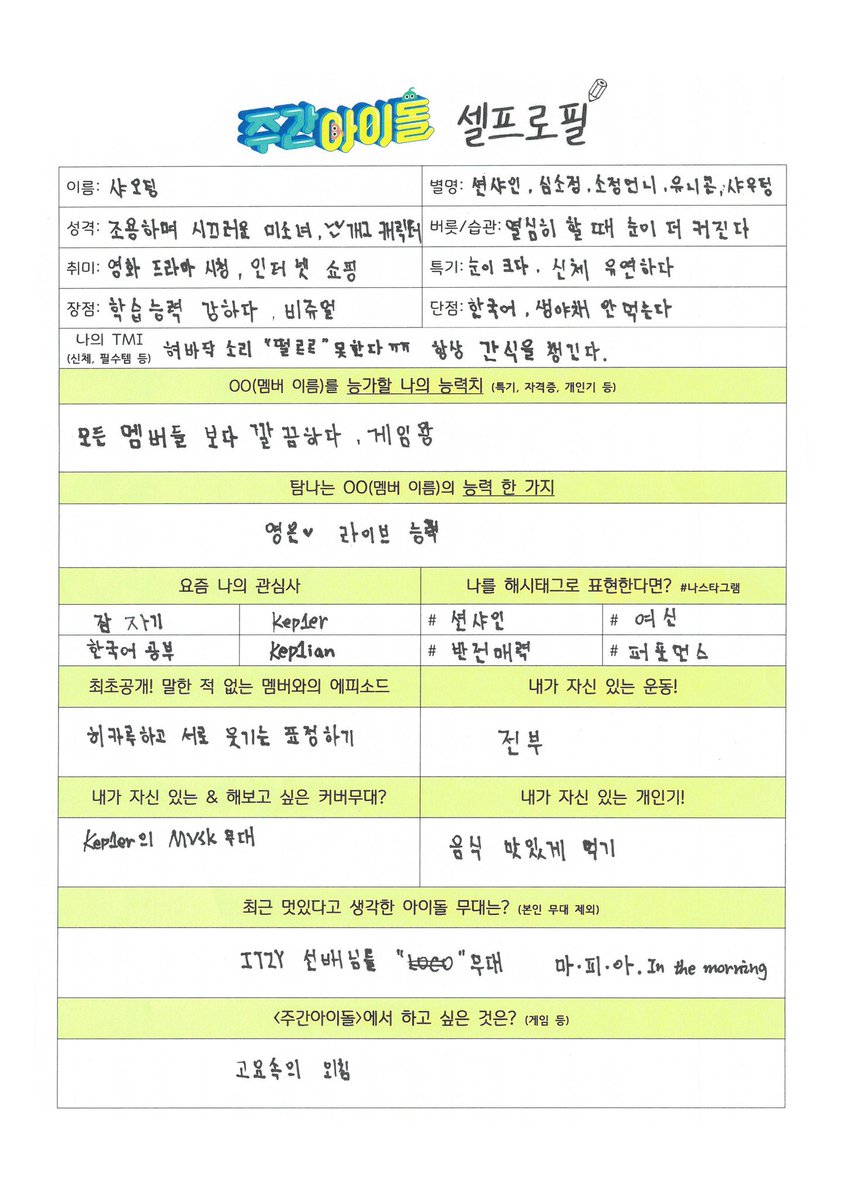 주간아이돌 셀프로필
이름: 샤오팅
별명: 션샤인, 심소정, 소정언니, 유니콘, 샤우팅
성격: 조용하며 시끄러운 미소녀, 난 개그 캐릭터
버릇/습관: 열심히 할 때 눈이 더 커진다
취미: 영화 드라마 시청, 인터넷 쇼핑
특기: 눈이 크다. 신체 유연하다
장점: 학습능력 강하다, 비쥬얼
단점: 한국어, 생야채 안 먹는다
나의 TMI
(신체, 필수템 등)
혀바닥 소리 "떨르르" 못한다ㅠㅠ 항상 간식을 챙긴다.
OO(멤버 이름)를 능가할 나의 능력치 (특기, 자격증, 개인기 등)
모든 멤버들 보다 깔끔하다, 게임왕
탐나는 OO(멤버 이름)의 능력 한 가지
영은♥ 라이브 능력
요즘 나의 관심사
나를 해시태그로 표현한다면? #나스타그램
잠 자기
Kep1er
# 션샤인
# 여신
한국어 공부
Kep1ian
# 반전매력
# 퍼포먼스
최초공개! 말한 적 없는 멤버와의 에피소드
내가 자신 있는 운동!
히카루하고 서로 웃기는 표정하기
전부
내가 자신 있는 & 해보고 싶은 커버무대?
내가 자신 있는 개인기!
Kep1er의 MVSK 무대
음식 맛있게 먹기
최근 멋있다고 생각한 아이돌 무대는? (본인 무대 제외)
ITZY 선배님들 "LOCO"무대 마.피.아. In the morning
<주간아이돌>에서 하고 싶은 것은? (게임 등)
고요속의 외침